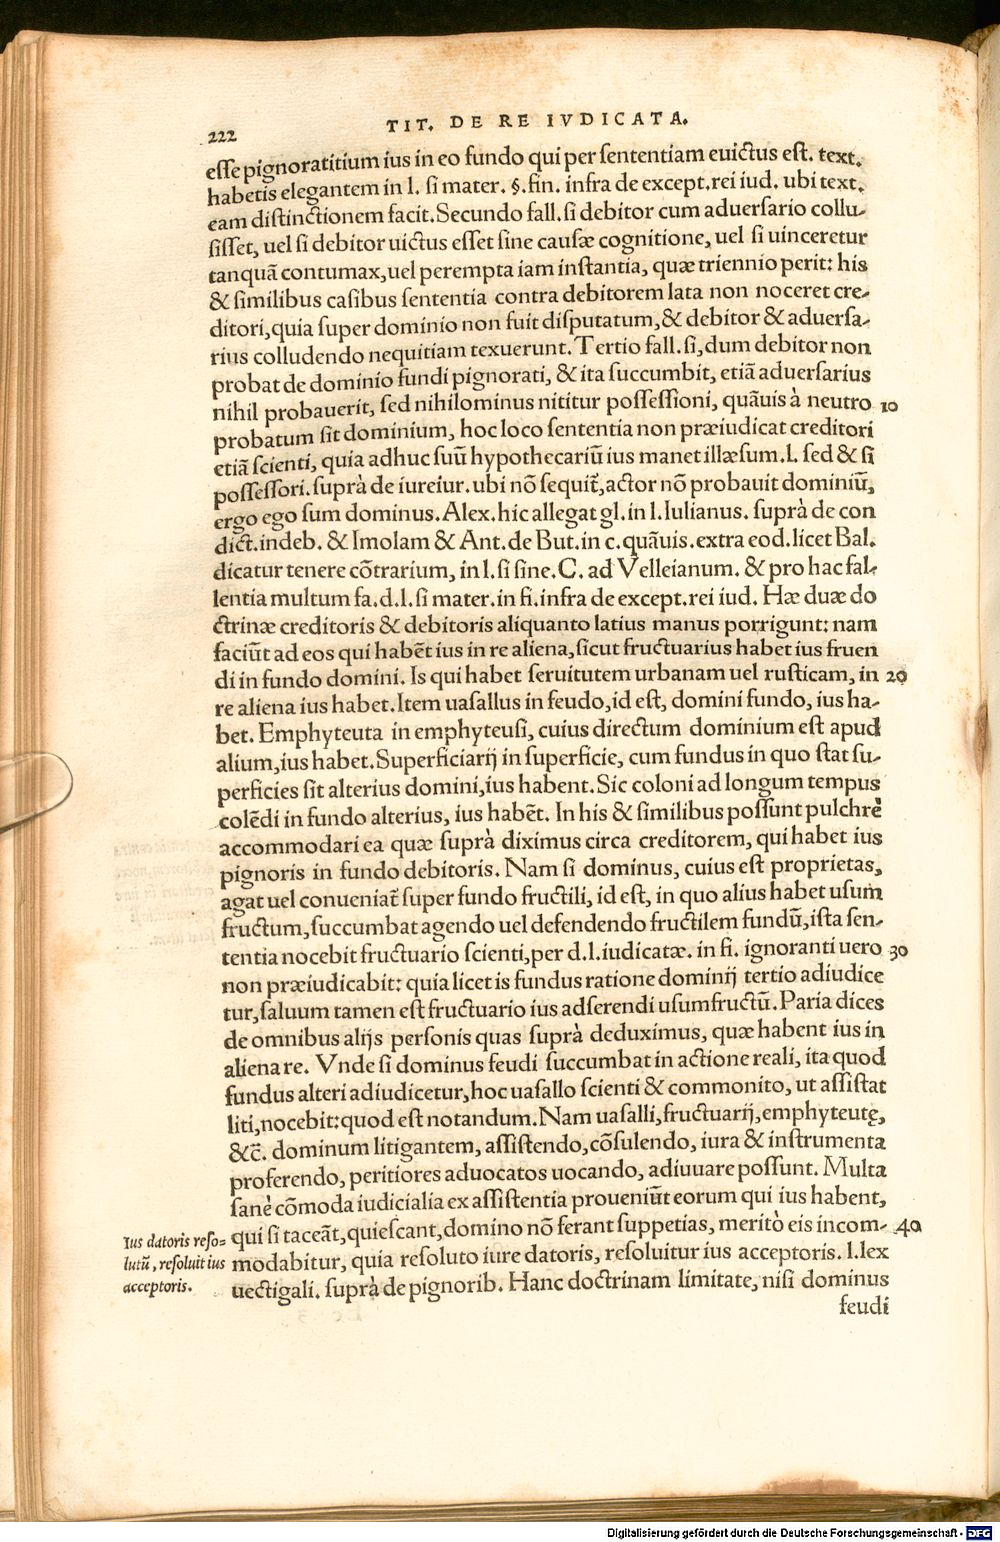 222
TIT. DE RE IVDICATA.
esse pignoratitium ius in eo fundo qui per sententiam euictus est. text.
habetis elegantem in l. si mater. §. fin. infra de except.rei iud. ubi text.
eam distinctionem facit. Secundo fall. si debitor cum aduersario collu-
sisset, uel si debitor uictus esset sine causæ cognitione, uel si uinceretur
tanquã contumax, uel perempta iam instantia, quæ triennio perit: his
& similibus casibus sententia contra debitorem lata non noceret cre-
ditori, quia super dominio non fuit disputatum, & debitor & aduersa-
rius colludendo nequitiam texuerunt. Tertio fall. si, dum debitor non
probat de dominio fundi pignorati, & ita succumbit, etiã aduersarius
nihil probauerit, sed nihilominus nititur possessioni, quãuis à neutro 10
probatum sit dominium, hoc loco sententia non præiudicat creditori
etiã scienti, quia adhuc suũ hypothecariũ ius manet illæsum. l. sed & si
possessori. suprà de iureiur. ubi nõ sequit̃, actor nõ probauit dominiũ,
ergo ego sum dominus. Alex. hic allegat gl. in l. Iulianus. suprà de con
dict. indeb. & Imolam & Ant. de But. in c. quãuis. extra eod. licet Bal.
dicatur tenere cõtrarium, in l. si sine. C. ad Velleianum. & pro hac fal-
lentia multum fa. d. l. si mater. in fi. infra de except. rei iud. Hæ duæ do
ctrinæ creditoris & debitoris aliquanto latius manus porrigunt: nam
faciũt ad eos qui habẽt ius in re aliena, sicut fructuarius habet ius fruen
di in fundo domini. Is qui habet seruitutem urbanam uel rusticam, in 20
re aliena ius habet. Item uasallus in feudo, id est, domini fundo, ius ha-
bet. Emphyteuta in emphyteusi, cuius directum dominium est apud
alium, ius habet. Superficiarij in superficie, cum fundus in quo stat su-
perficies sit alterius domini, ius habent. Sic coloni ad longum tempus
colẽdi in fundo alterius, ius habẽt. In his & similibus possunt pulchrè
accommodari ea quæ suprà diximus circa creditorem, qui habet ius
pignoris in fundo debitoris. Nam si dominus, cuius est proprietas,
agat uel conueniat̃ super fundo fructili, id est, in quo alius habet usum
fructum, succumbat agendo uel defendendo fructilem fundũ, ista sen-
tentia nocebit fructuario scienti, per d. l. iudicatæ. in fi. ignoranti uero 30
non præiudicabit: quia licet is fundus ratione dominij tertio adiudice
tur, saluum tamen est fructuario ius adserendi usumfructũ. Paria dices
de omnibus alijs personis quas suprà deduximus, quæ habent ius in
aliena re. Vnde si dominus feudi succumbat in actione reali, ita quod
fundus alteri adiudicetur, hoc uasallo scienti & commonito, ut assistat
liti, nocebit: quod est notandum. Nam uasalli, fructuarij, emphyteutę,
&c̃. dominum litigantem, assistendo, cõsulendo, iura & instrumenta
proferendo, peritiores aduocatos uocando, adiuuare possunt. Multa
sanè cõmoda iudicialia ex assistentia proueniũt eorum qui ius habent,
qui si taceãt, quiescant, domino nõ ferant suppetias, meritò eis incom- 40
modabitur, quia resoluto iure datoris, resoluitur ius acceptoris. l. lex
uectigali. suprà de pignorib. Hanc doctrinam limitate, nisi dominus
feudi
Ius datoris reso=
lutũ, resoluit ius
acceptoris.
Digitalisierung gefördert durch die Deutsche Forschungsgemeinschaft - DFG